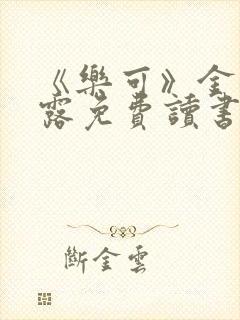 《樂可》金
露免費讀書
斷金雲